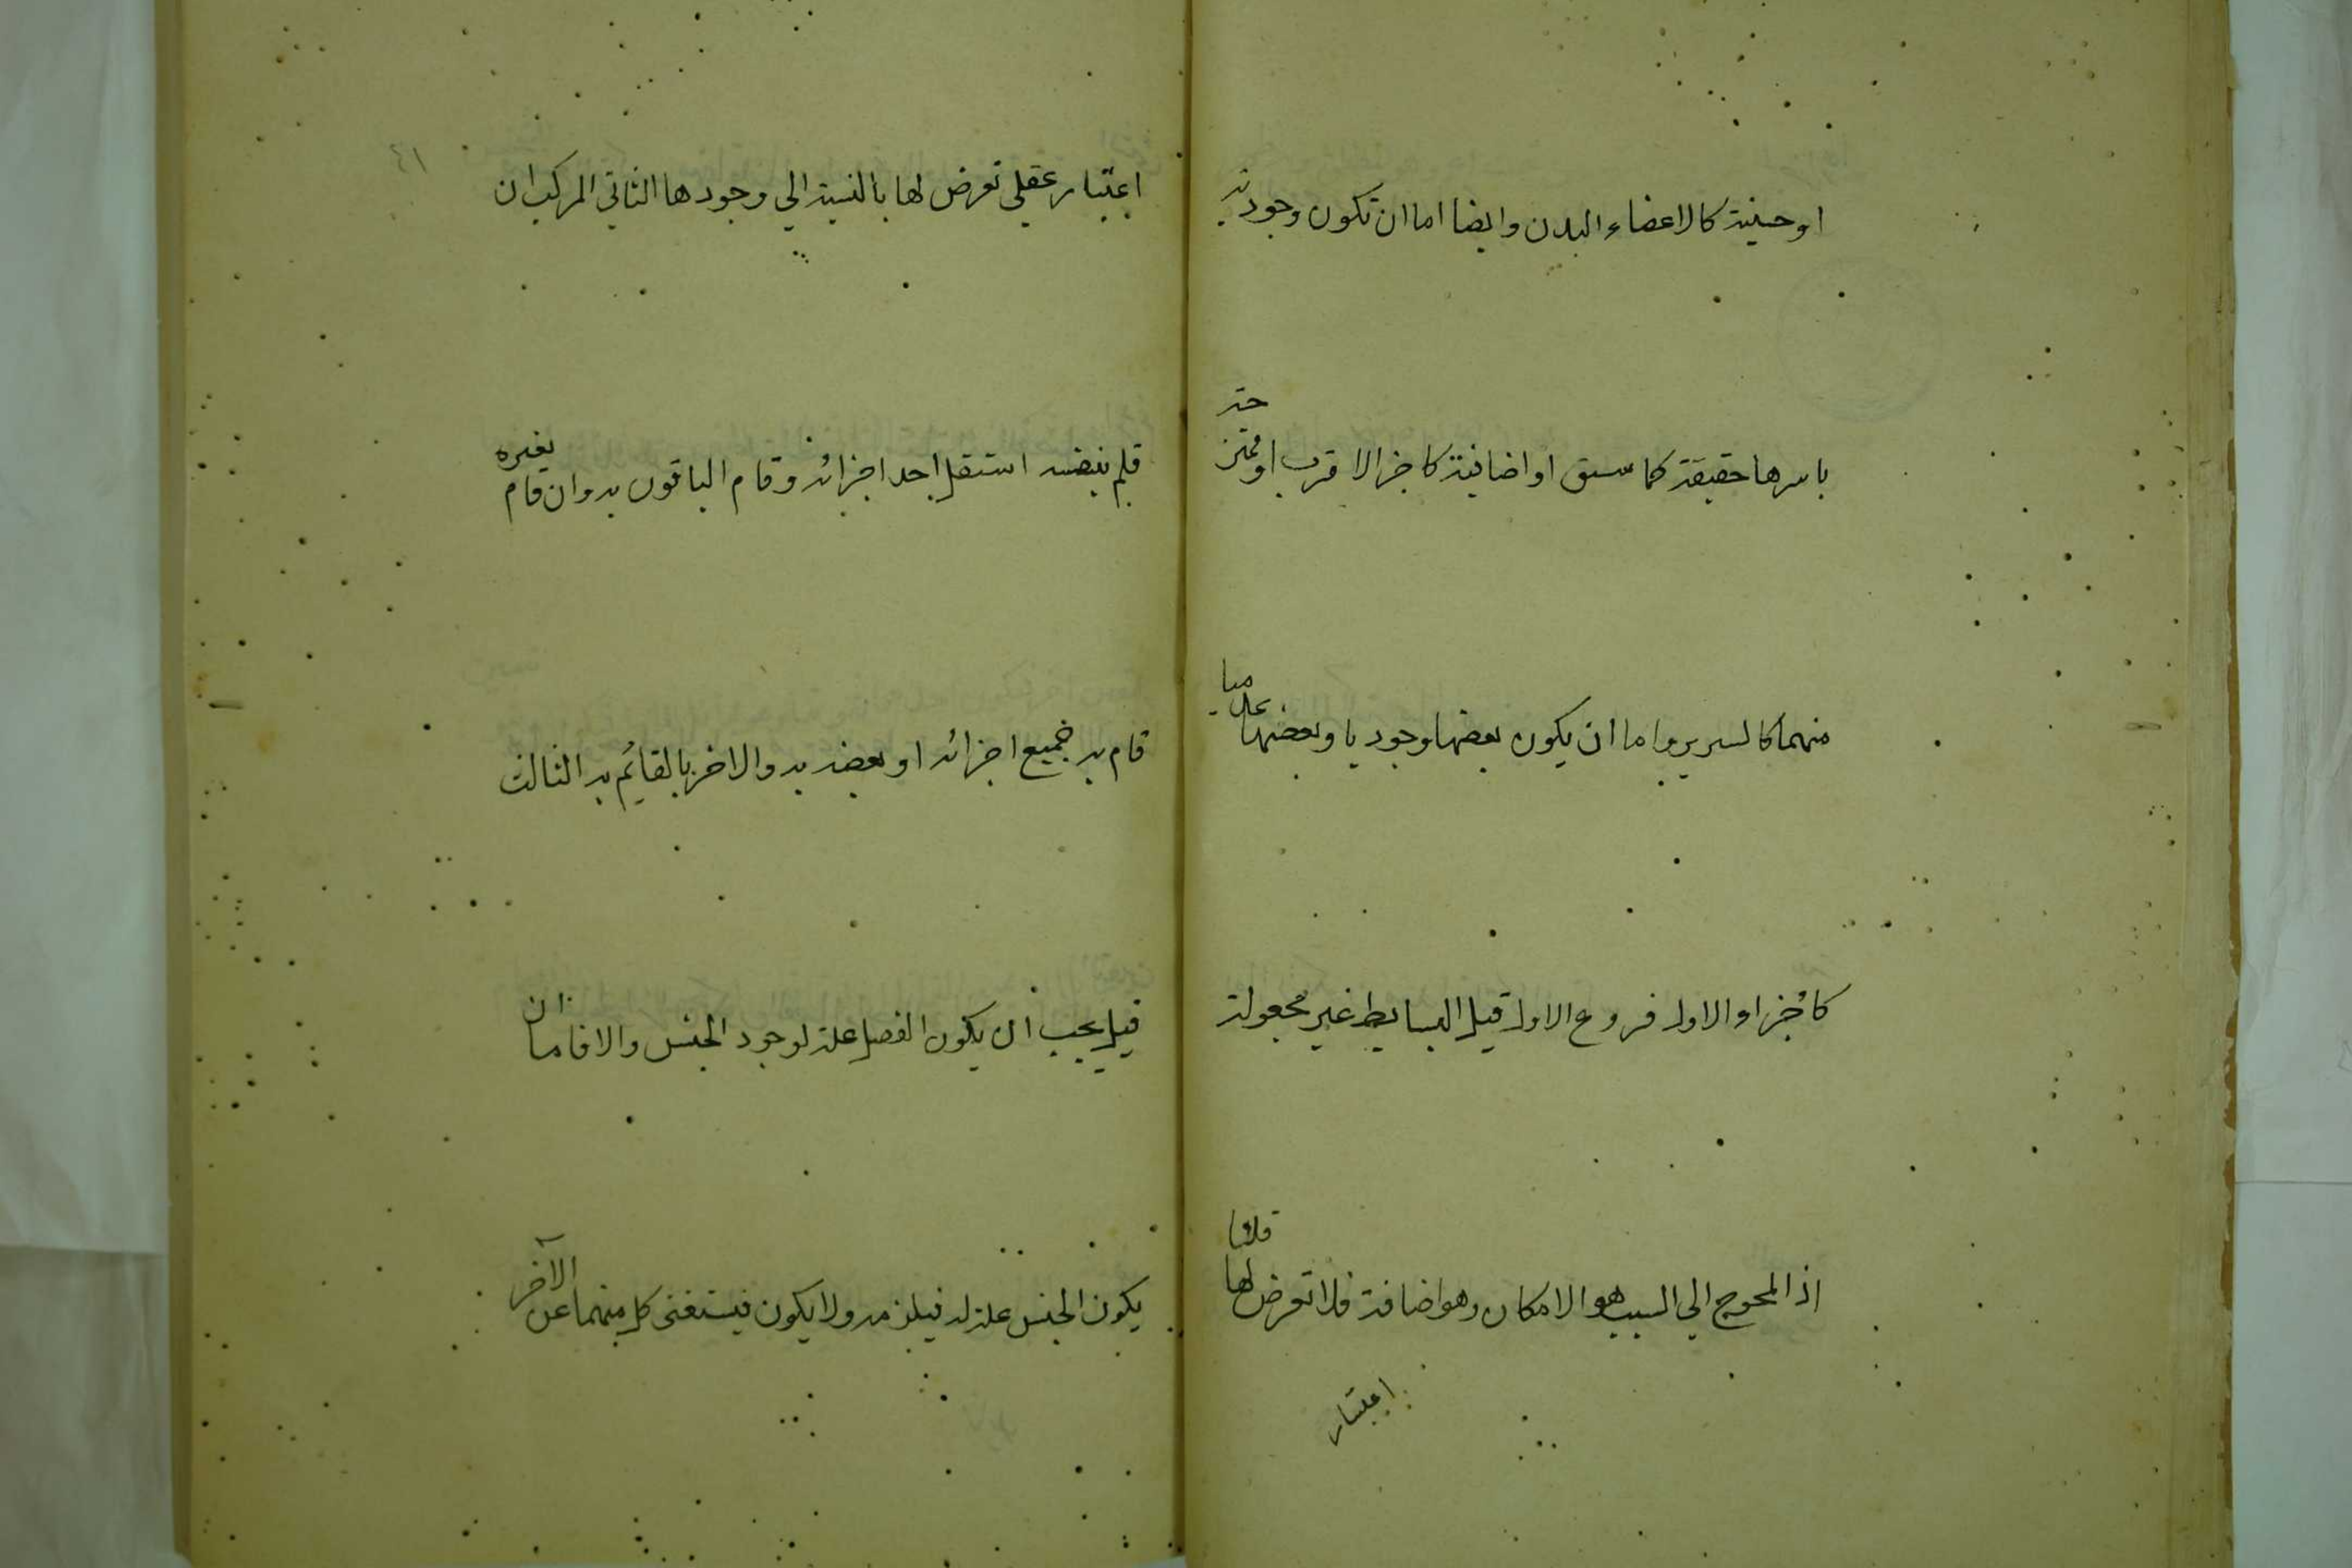 او حسية كالاعضاء البدن وايضا اما ان تكون وجودية
باسرها حقيقة كما سبق او اضافية كاجزا الاقرب او ممتزجة
منهما كالسرير واما ان يكون بعضها وجوديا وبعضها عدميا
كاجزاء الاول فروع الاول قيل البسايط غير مجعولة
اذ المحوج الي السبب هو الامكان وهو اضافة فلا تعرض لها قلنا
اعتبار
٤١
اعتبار عقلي تعرض لها بالنسبة الي وجودها الثاني المركب ان
قام بنفسه استقل احد اجزائه وقام الباقون به وان قام بغيره
قام به جميع اجزائه او بعضه به والاخر بالقايم به الثالث
قيل يجب ان يكون الفصل علة لوجود الجنس والا فاما ان
يكون الجنس علة له فيلزمه ولا يكون فيستغنى كل منهما عن الآخر